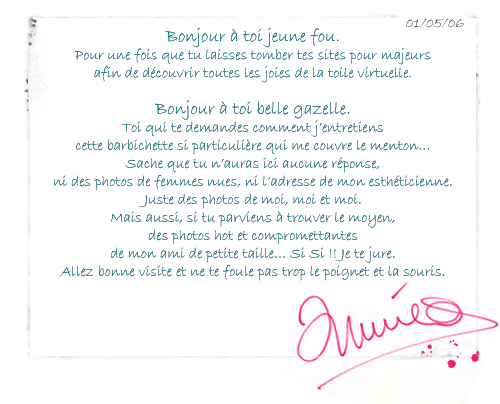 01/05/06
Bonjour à toi jeune fou.
Pour une fois que tu laisses tomber tes sites pour majeurs
afin de découvrir toutes les joies de la toile virtuelle.
Bonjour à toi belle gazelle.
Toi qui te demandes comment j'entretiens
cette barbichette si particulière qui me couvre le menton...
Sache que tu n'auras ici aucune réponse,
ni des photos de femmes nues, ni l'adresse de mon esthéticienne.
Juste des photos de moi, moi et moi.
Mais aussi, si tu parviens à trouver le moyen,
des photos hot et compromettantes
de mon ami de petite taille... Si Si !! Je te jure.
Allez bonne visite et ne te foule pas trop le poignet et la souris.